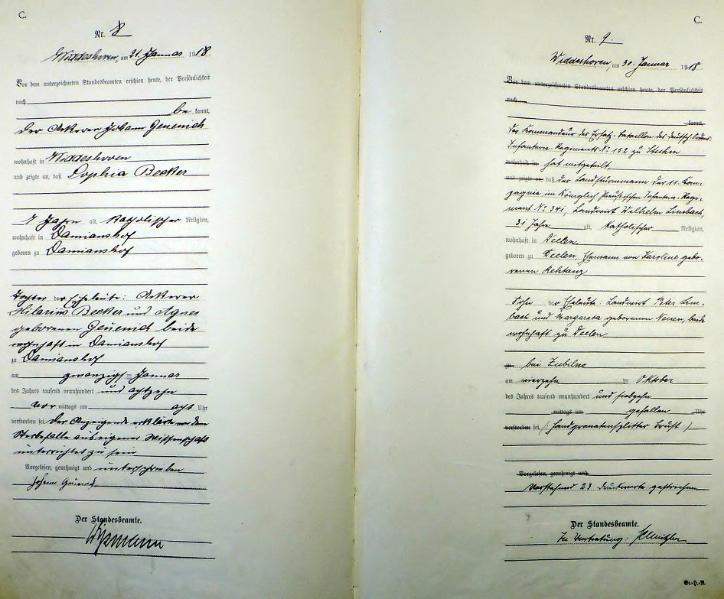 C.
Nr. 8
Widdeshoven, am 21. Januar 1918
Vor dem unterzeichneten Standesbeamten erschien heute, der Persönlichkeit
nach
be kannt,
der Ackerer Johann Genenich
wohnhaft in Widdeshoven
und zeigte an, daß Sophia Becker
Jahre alt, katholischer Religion,
wohnhaft in Damianshof
geboren zu Damianshof
Tochter der Eheleute: Ackerer
Hilarius Becker und Agnes
geborenen Genenich beide
wohnhaft in Damianshof
zu Damianshof
am zwanzigsten Januar
des Jahres tausend neunhundert und achtzehn
vor mittags um acht Uhr
verstorben sei. Der Anzeigende erklärte von dem
Sterbefalle aus eigener Wissenschaft
unterrichtet zu sein
Vorgelesen, genehmigt und unterschrieben
Johann Genenich
Der Standesbeamte.
C.
Nr. 9.
Widdeshoven, am 30. Januar 1918
Vor dem unterzeichneten Standesbeamten erschien heute, der Persönlichkeit
nach
kannt,
Der Kommandeur des Ersatz-Bataillon des Deutsch Ordens
Infanterie Regiments Nr. 152 zu
wohnhaft in hat mitgeteilt,
und zeigte an, daß der Landsturmmann der 11. Kom-
pagnie im Königlich Preußischen Infanterie-Regi-
ment Nr. 341, Landwirt Wilhelm
31 Jahre alt, katholischer Religion,
wohnhaft in
geboren zu Ehemann von Karoline gebo-
renen
Sohn der Eheleute Landwirt Peter
und Margareta geborenen beide
wohnhaft zu
zu bei
am vierzehn ten Oktober
des Jahres tausend neunhundert und siebzehn
mittags um gefallen Uhr
verstorben sei (Handgranatensplitter Brust)
Vorgelesen, genehmigt und
Vorstehend 23 Druckworte gestrichen
Der Standesbeamte.
In Vertretung: